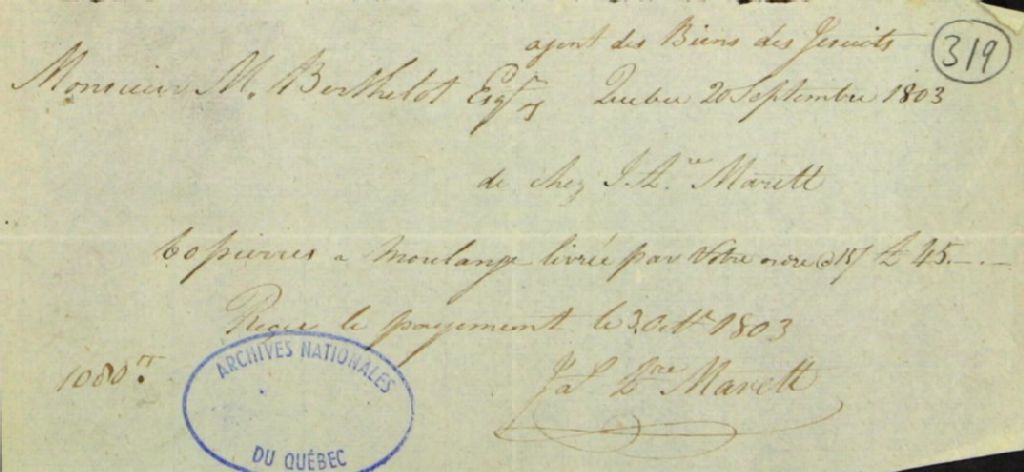 319
agent des Biens des Jesuits
Monsieur M. Berthelot Esqr Quebec 20 September 1803
de chez J. Marett
60 pierres a moulange livrée par votre ordre @ 15/ £ 45.-.-
Recu le payement le 3. Octr 1803
1080tt.
Marett
ARCHIVES NATIONALES
DU QUÉBEC